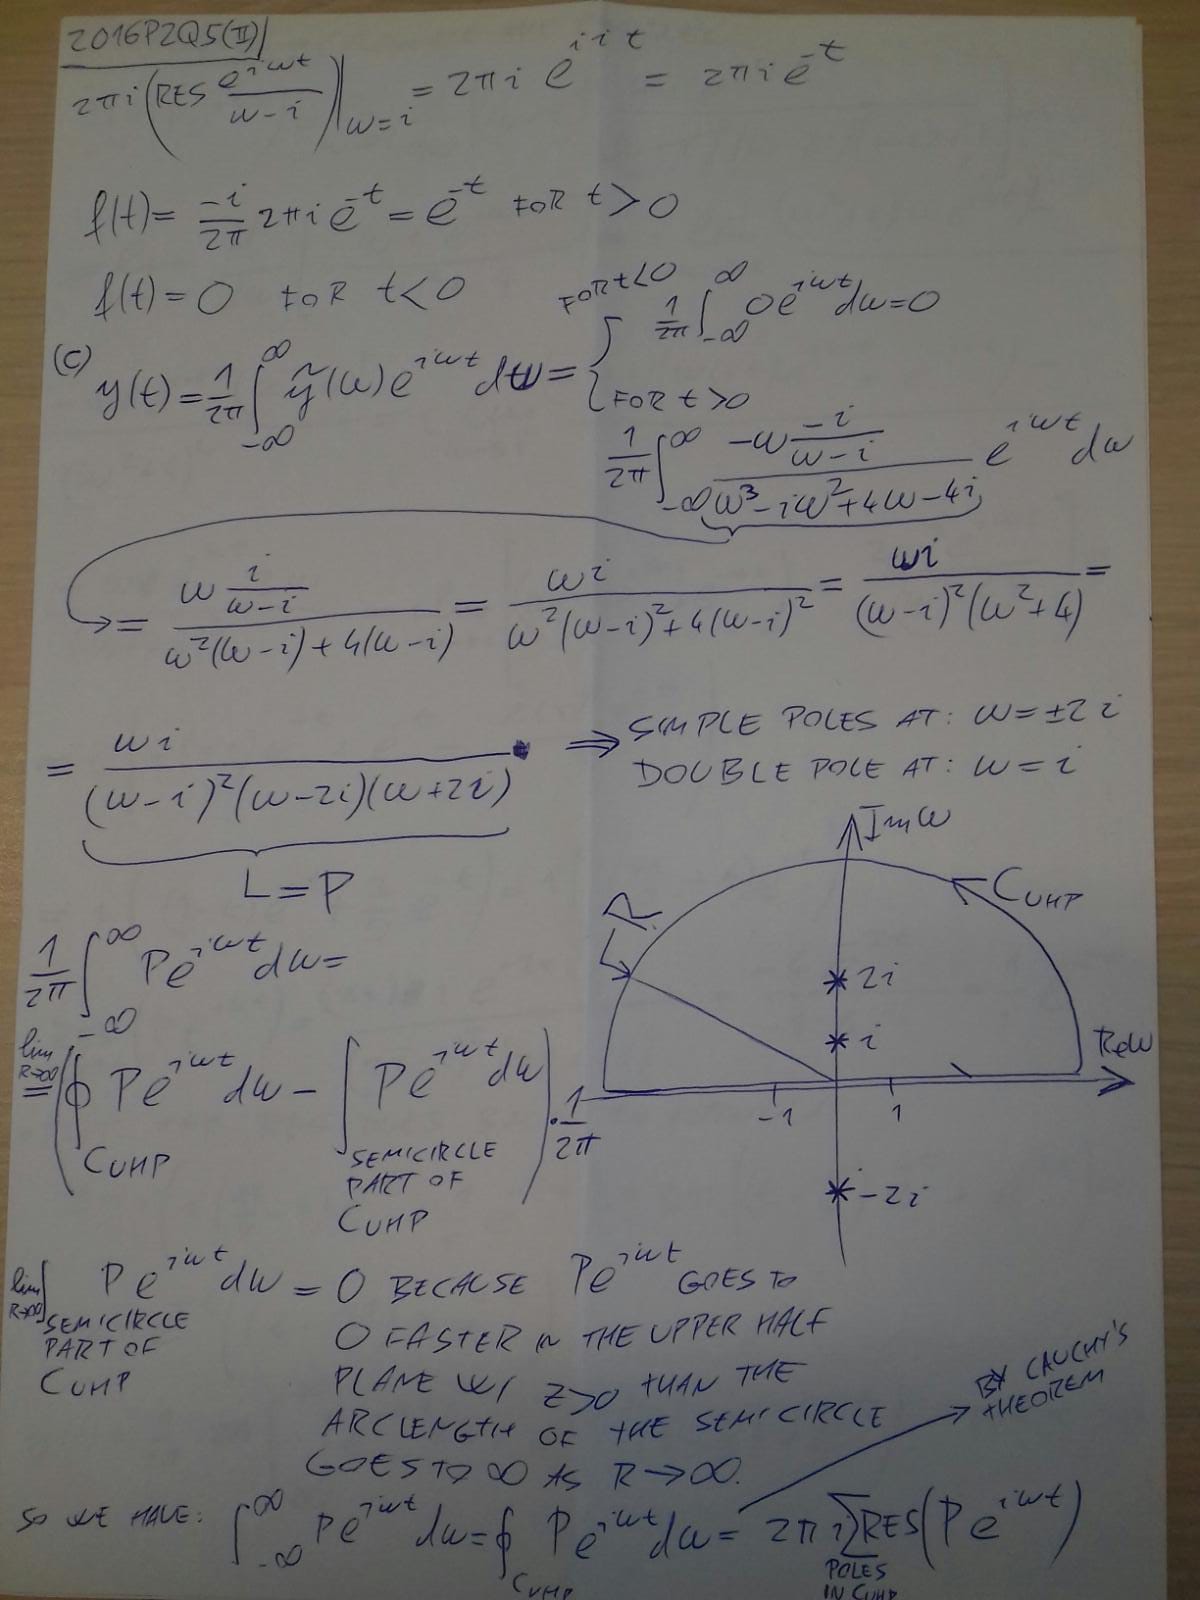 2016P2Q5(II)
2πi(RES e^{iωt}/(ω-i))|_{ω=i} = 2πi e^{iit} = 2πi e^{-t}
f(t)= -i/2π 2πi e^{-t} = e^{-t} FOR t>0
f(t)=0 FOR t<0
(c) y(t) = 1/2π ∫_{-∞}^{∞} ỹ(ω)e^{iωt}dω = {
FOR t<0 1/2π ∫_{-∞}^{∞} 0e^{iωt}dω=0
FOR t>0
1/2π ∫_{-∞}^{∞} (-ω (-i)/(ω-i))/(ω³-iω²+4ω-4i) e^{iωt}dω
= (ω i/(ω-i))/(ω²(ω-i)+4(ω-i)) = ωi/(ω²(ω-i)²+4(ω-i)²) = ωi/((ω-i)²(ω²+4)) =
= ωi/((ω-i)²(ω-2i)(ω+2i)) ⇒ SIMPLE POLES AT: ω=±2i
DOUBLE POLE AT: ω=i
L=P
Imω
C_{UHP}
R
2i
i
Reω
-1
1
-2i
1/2π ∫_{-∞}^{∞} Pe^{iωt}dω=
lim_{R→∞} = (∮_{C_{UHP}} Pe^{iωt}dω - ∫_{SEMICIRCLE PART OF C_{UHP}} Pe^{iωt}dω)·1/2π
lim_{R→∞} ∫_{SEMICIRCLE PART OF C_{UHP}} Pe^{iωt}dω = 0 BECAUSE Pe^{iωt} GOES TO
0 FASTER IN THE UPPER HALF
PLANE W/ Z>0 THAN THE
ARCLENGTH OF THE SEMICIRCLE
GOES TO ∞ AS R→∞.
BY CAUCHY'S
THEOREM
SO WE HAVE: ∫_{-∞}^{∞} Pe^{iωt}dω = ∮_{C_{UHP}} Pe^{iωt}dω = 2πi Σ_{POLES IN C_{UHP}} RES(Pe^{iωt})